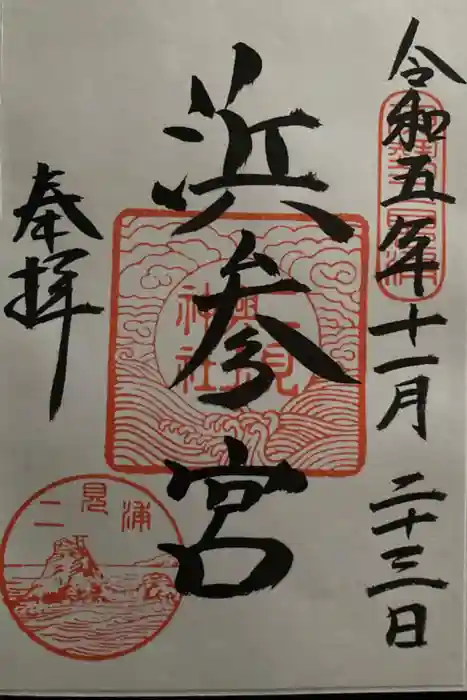 令和五年十一月二十三日
浜参宮
奉拝
二見
興玉
神社
二見浦